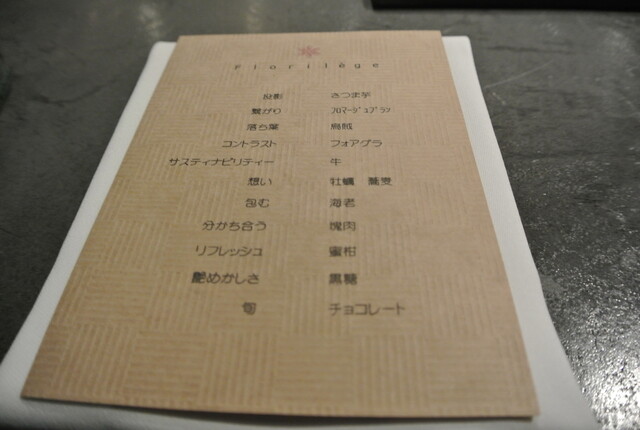 Florilège
投影 さつま芋
繋がり フロマージュブラン
落ち葉 烏賊
コントラスト フォアグラ
サスティナビリティー 牛
想い 牡蠣 蕎麦
包む 海老
分かち合う 塊肉
リフレッシュ 蜜柑
艶めかしさ 黒糖
旬 チョコレート